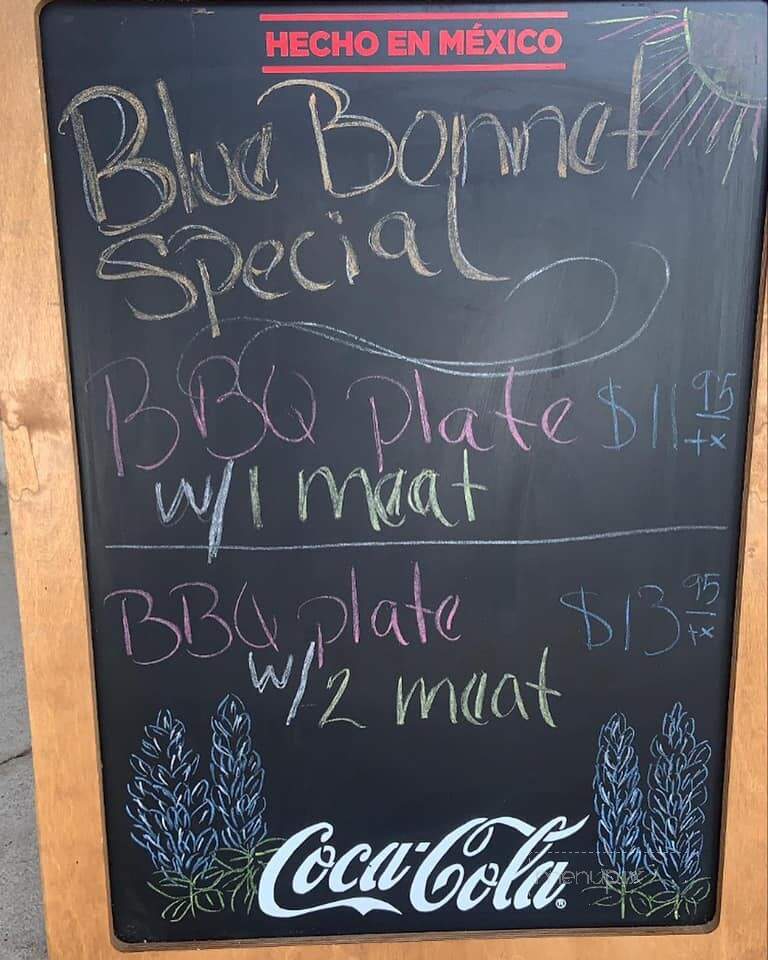 HECHO EN MÉXICO
Blue Bonnet
Special
BBQ plate $11 95
w/1 meat +x
BBQ plate $13 95 +x
w/2 meat
Coca-Cola ®
menupix